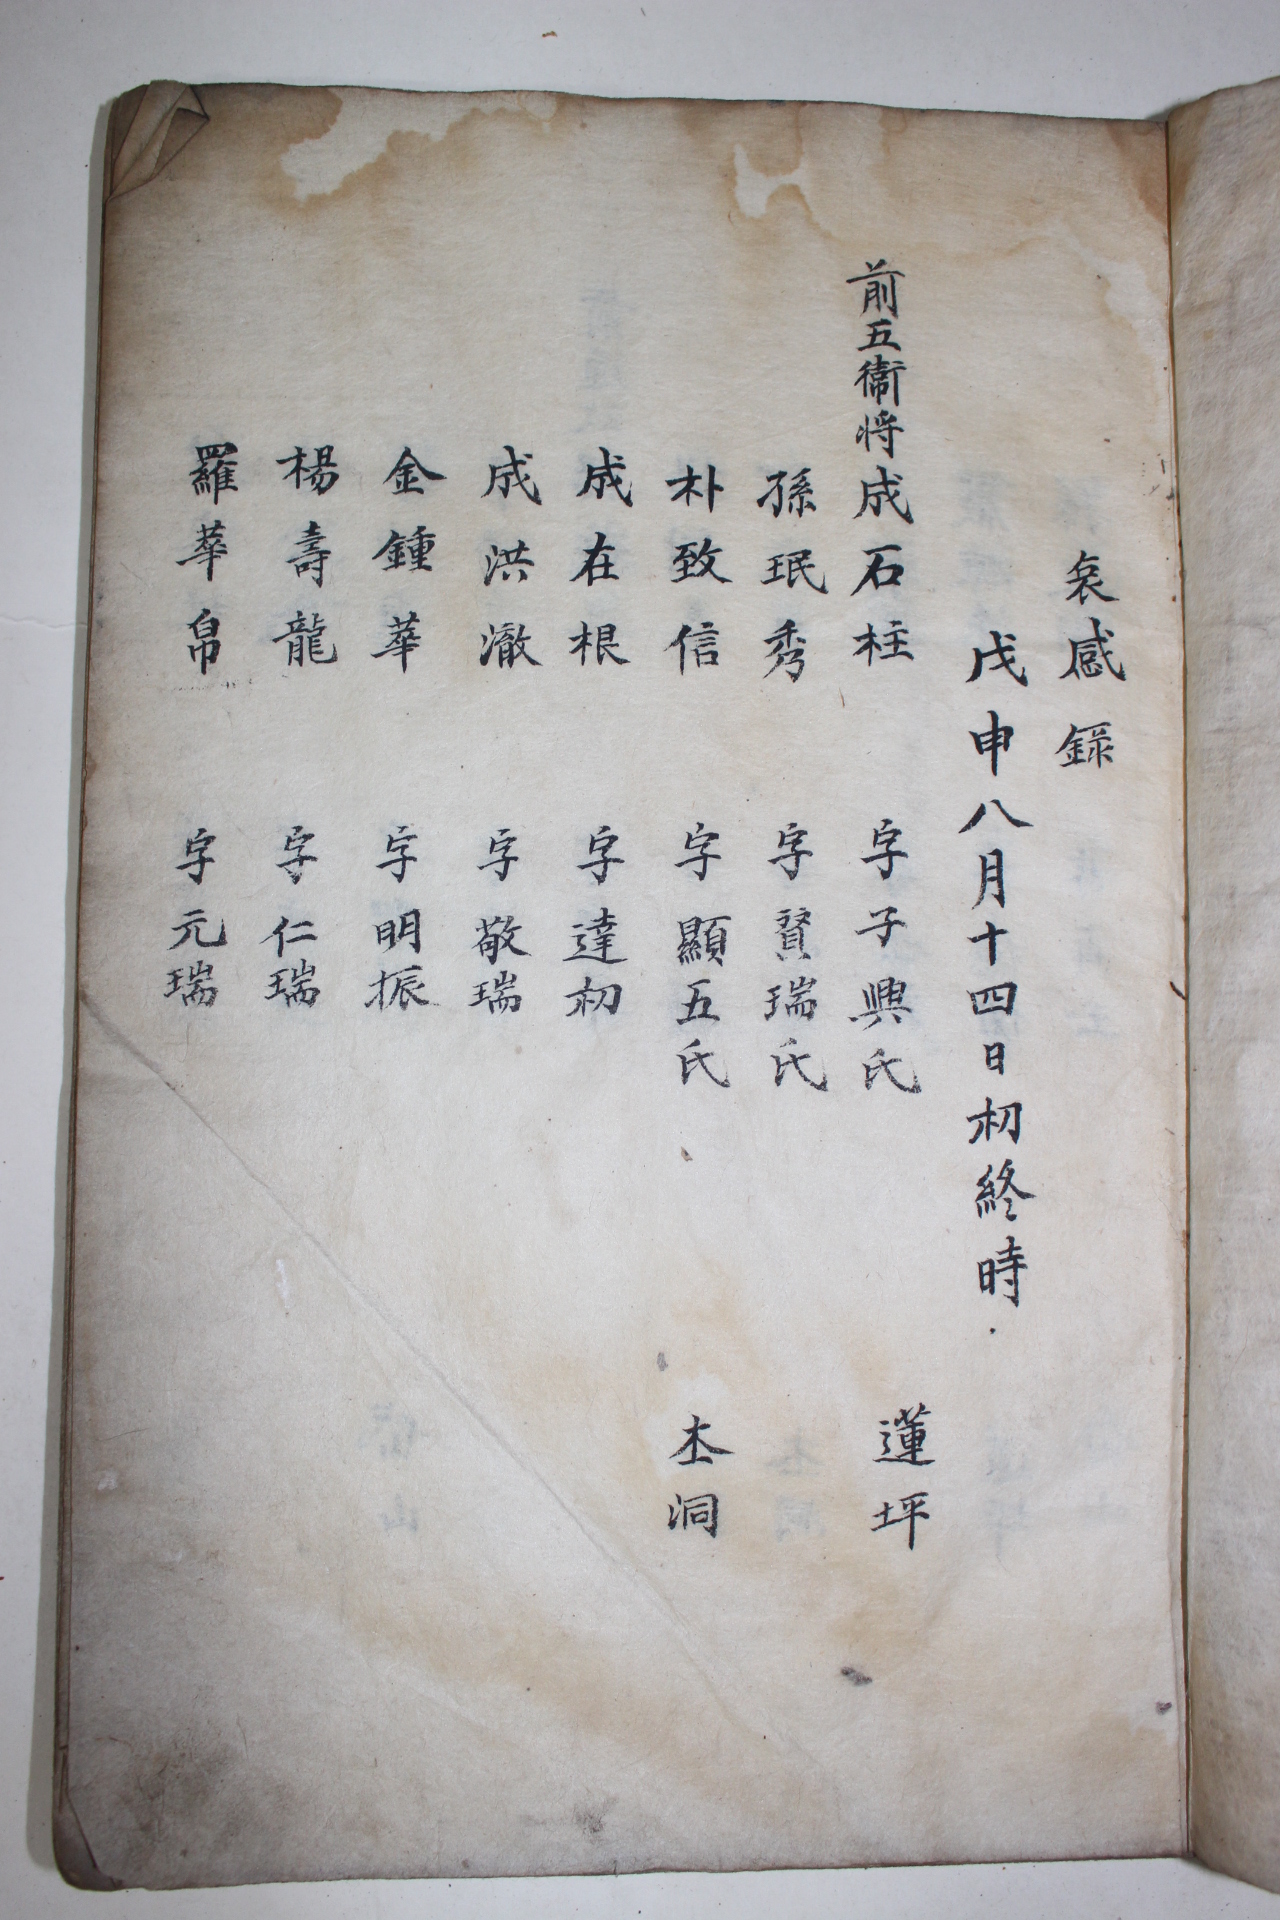 哀感錄
戊申八月十四日初終時
前五衛將成石柱 字子興氏 蓮坪
孫珉秀 字賛瑞氏
朴致信 字顯五氏 杢洞
成在根 字達初
成洪澈 字敬瑞
金鍾華 字明振
楊壽龍 字仁瑞
羅華帛 字元瑞